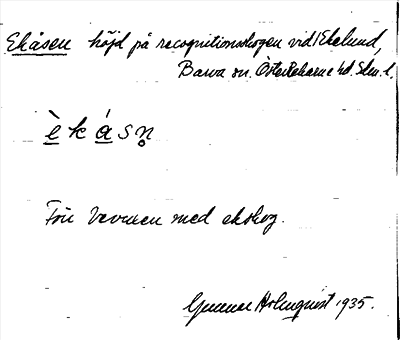 Ekåsen höjd på recognitionsskogen vid Ekelund,
Barva sn. Österrekarne hd. Slm. l.
è k á s n̥
Förr med ekskog.
Gunnar Holmquist 1935.